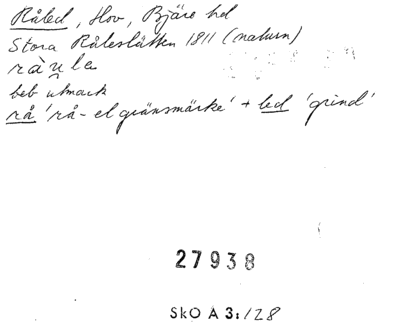 Råled, Hov, Bjäre hd
Stora Råleslätten 1811 (naturn)
beb utmark
rå 'rå- el gränsmärke' + led 'grind'
27938
SkO A 3:128